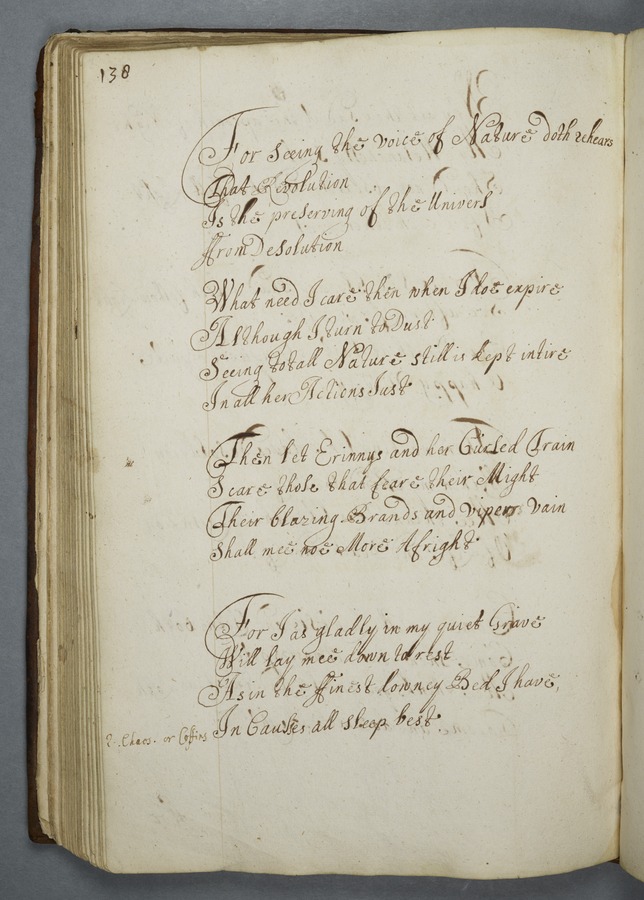 138
For seeing the voice of Nature doth rehears
That Revolution
Is the preserving of the Univers
ffrom Desolution
What need I care then when I doe expire
Although I turn to Dust
Seeing totall Nature still is kept intire
In all her Actions Just
Then let Erinnys and her Cursed Train
Scare those that feare their Might
Their blazing Brands and vipers vain
Shall mee noe More Afright
For I as gladly in my quiet Grave
Will lay mee down to rest
As in the ffinest Downey Bed I have
In Causes all sleep best
Chaos. or Coffins